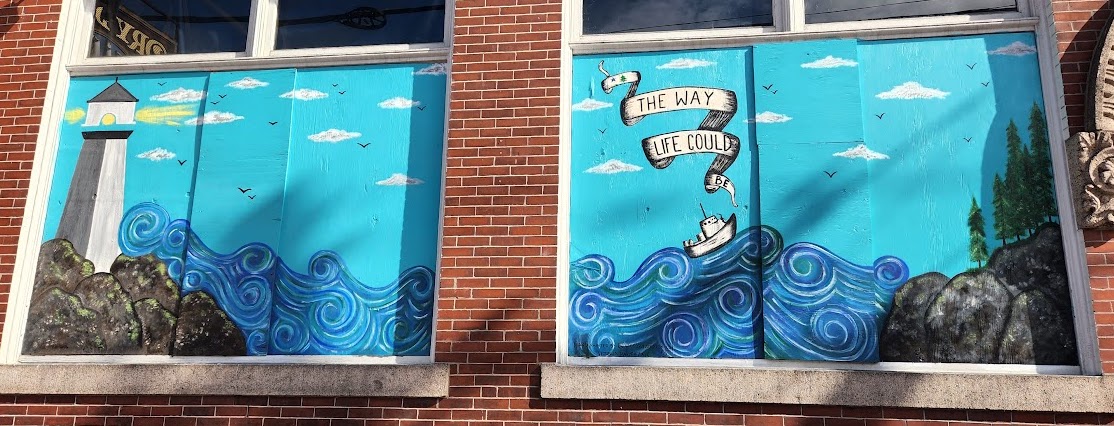 THE WAY
LIFE COULD
BE